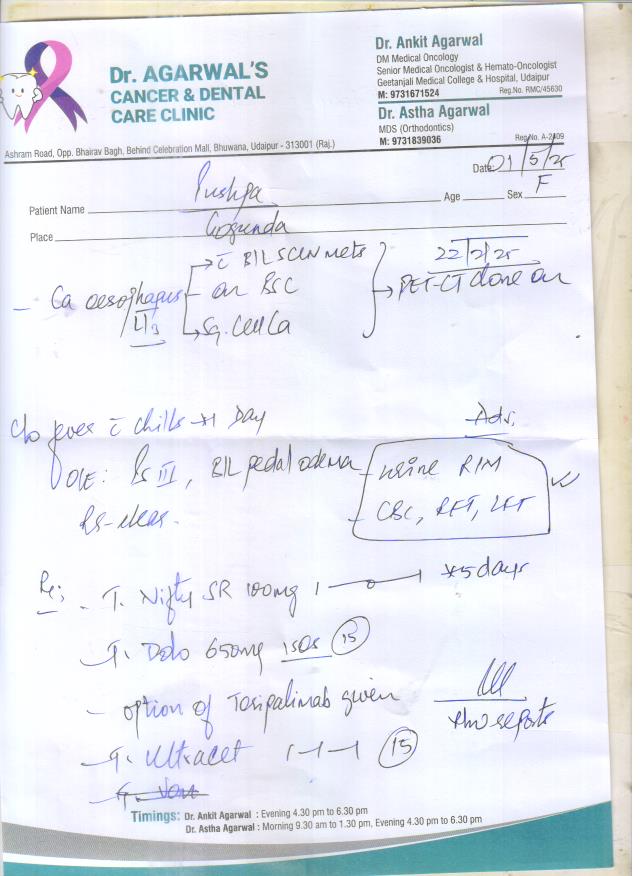 Dr. AGARWAL'S
CANCER & DENTAL
CARE CLINIC
Dr. Ankit Agarwal
DM Medical Oncology
Senior Medical Oncologist & Hemato-Oncologist
Geetanjali Medical College & Hospital, Udaipur
M: 9731671524 Reg.No. RMC/45630
Dr. Astha Agarwal
MDS (Orthodontics)
M: 9731839036 Reg No. A-2409
Ashram Road, Opp. Bhairav Bagh, Behind Celebration Mall, Bhuwana, Udaipur - 313001 (Raj.)
Date: 01/5/25
Patient Name Pushpa Age Sex F
Place Gogunda
- Ca oesophagus
L/3
→ c̄ B/L SCLN mets
- on BSC
→ Sq. Cell Ca
22/2/25
→ PET-CT done on
C/o fever c̄ chills x1 Day
O/E: PS III, B/L pedal odema
RS-clear.
Adv.
- urine R/M
- CBC, RFT, LFT
Rx;
- T. Nifty SR 100mg 1-0-1 x5 days
- T. Dolo 650mg 1SOS (15)
- option of Toripalimab given
- T. Ultracet 1-1-1 (15)
reports
Timings: Dr. Ankit Agarwal : Evening 4.30 pm to 6.30 pm
Dr. Astha Agarwal : Morning 9.30 am to 1.30 pm, Evening 4.30 pm to 6.30 pm